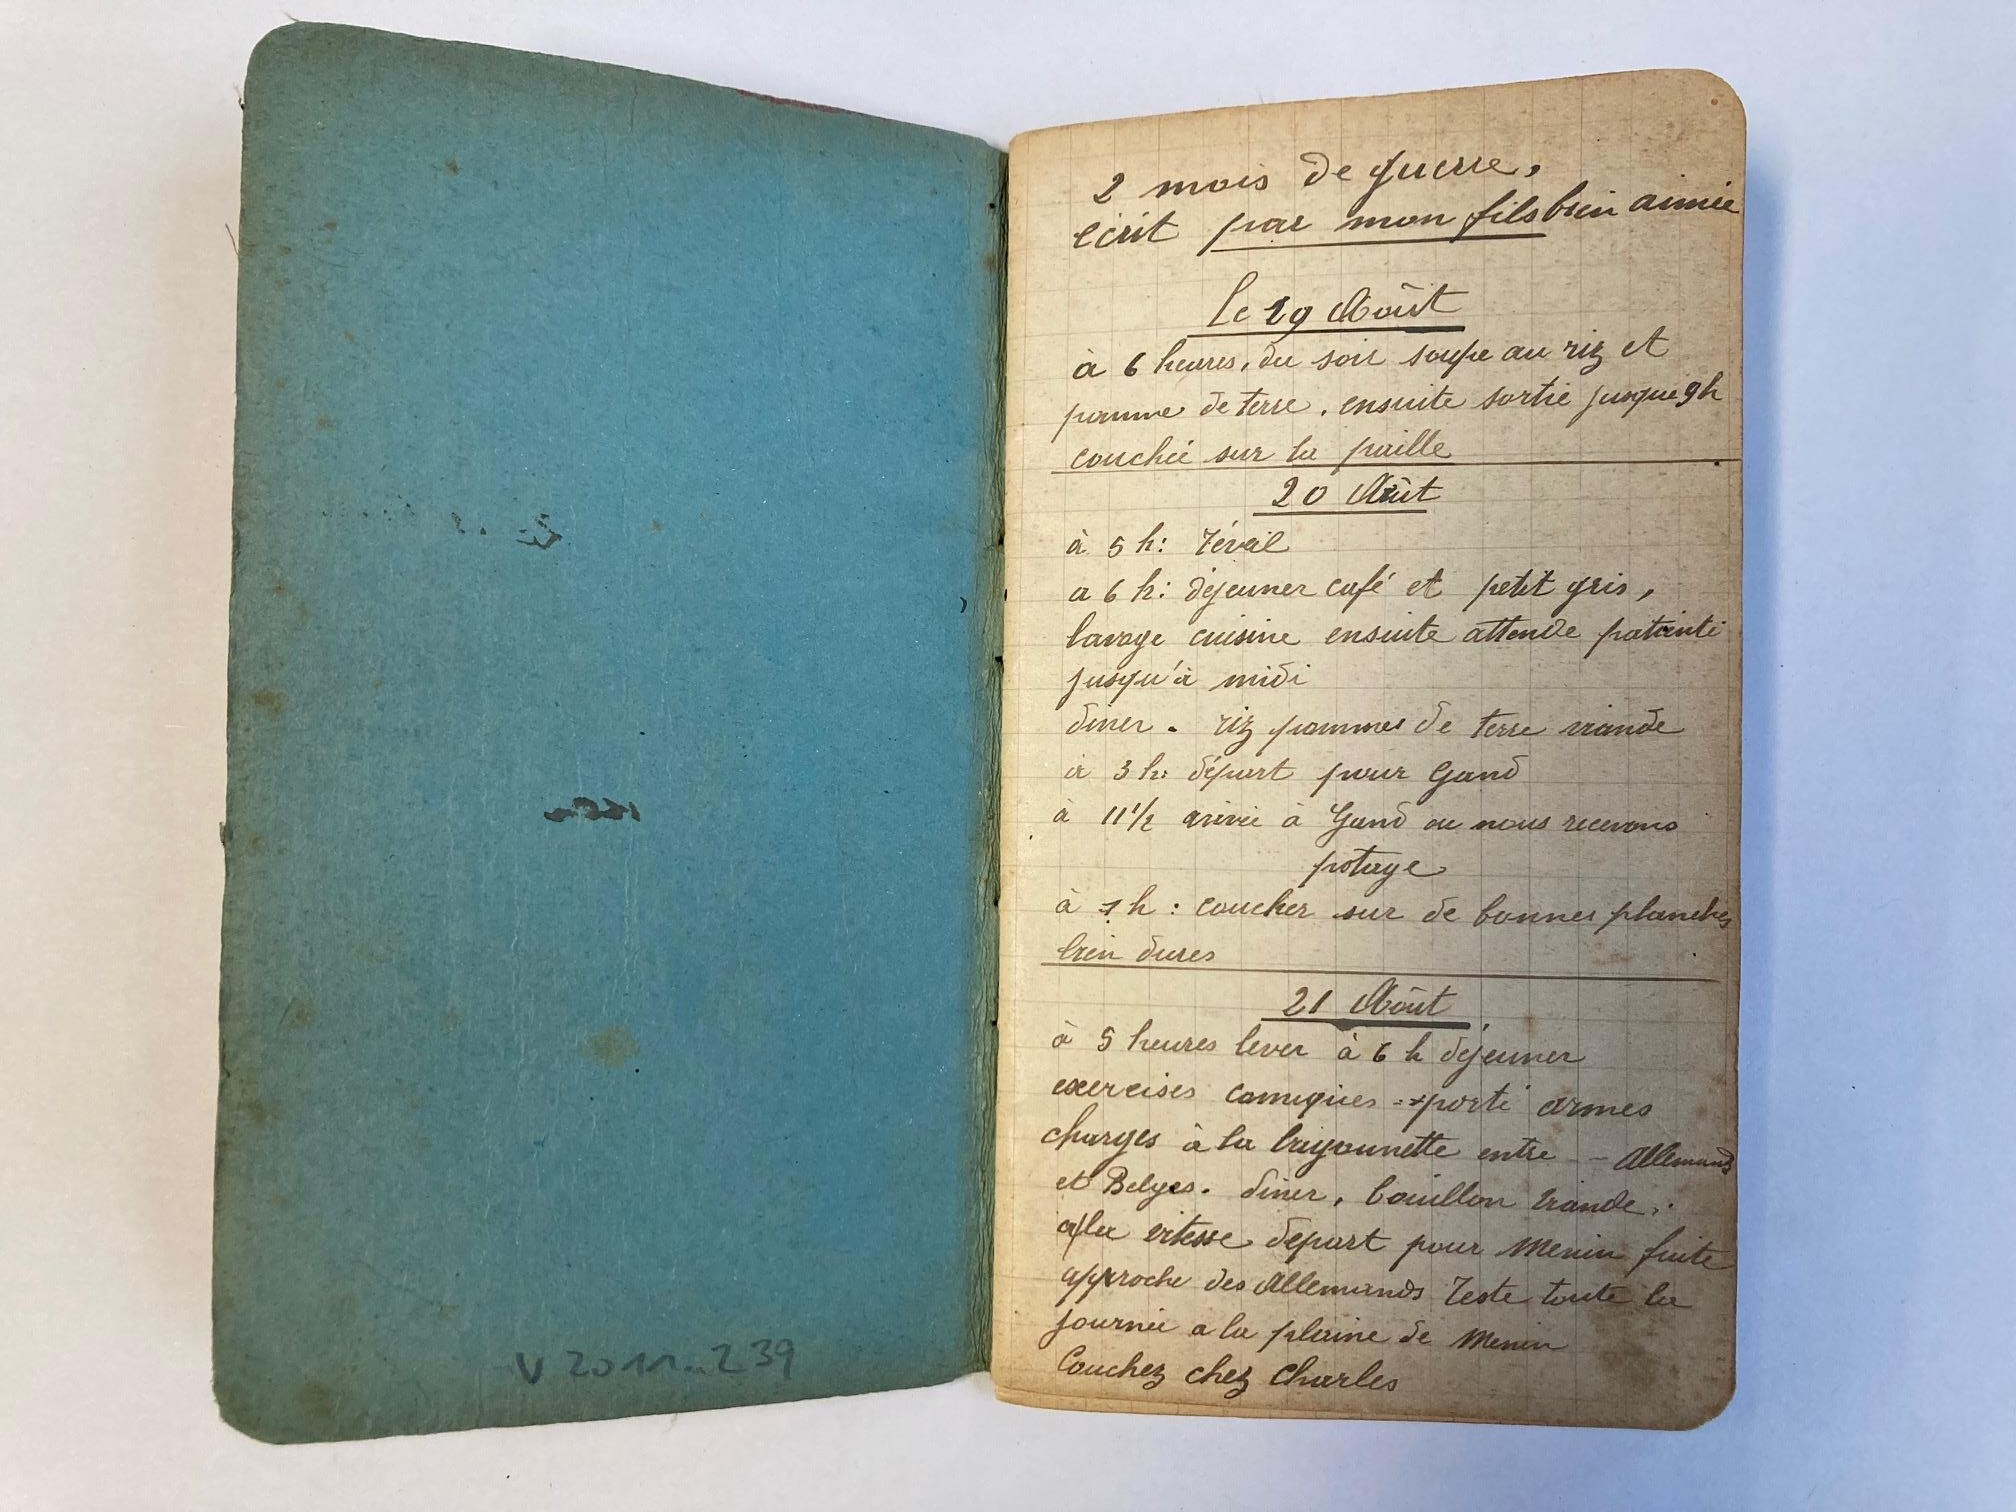 V 2011..239
2 mois de guerre,
écrit par mon fils bien aimée
Le 19 Août
à 6 heures, du soir soupe au riz et
pomme de terre. ensuite sortie jusque 9h
couchée sur la paille
20 Août
à 5 h: réveil
a 6 h: déjeuner café et petit gris,
lavage cuisine ensuite attende patienté
jusqu'à midi
diner. riz pommes de terre viande
à 3 h: départ pour Gand
à 11 1/2 arrivée à Gand ou nous recevons
potage
à 1 h: coucher sur de bonnes planches
bien dures
21 Août
à 5 heures lever à 6 h déjeuner
exercises comiques porté armes
charges à la bayonnette entre - Allemands
et Belges. diner, bouillon viande,
a la vitesse départ pour Menin fuite
approche des Allemands reste toute la
journée a la plaine de Menin
Couchez chez Charles